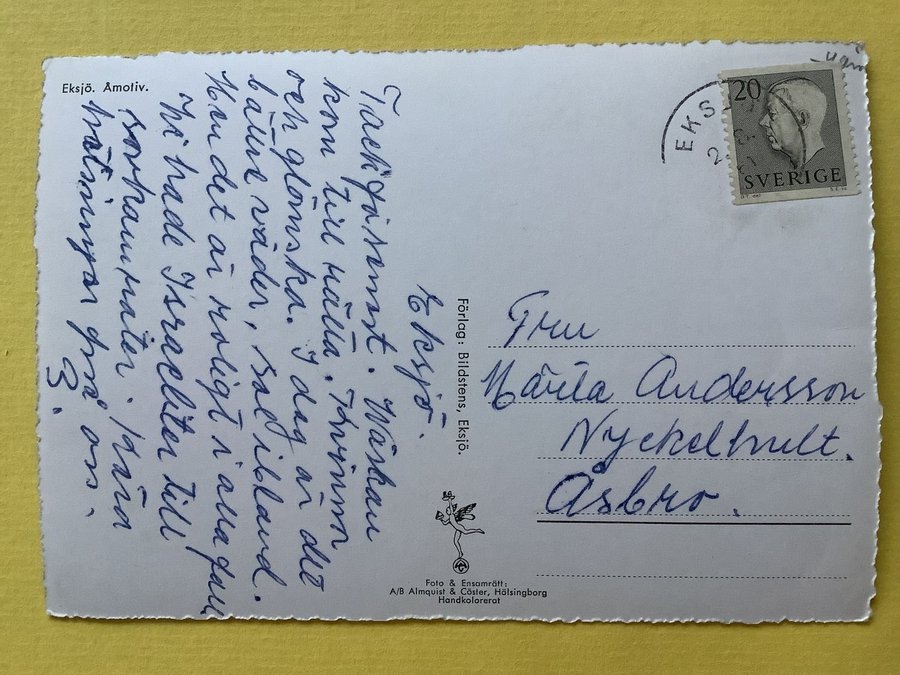 Eksjö. Åmotiv.
Eksjö.
Tack för senast. Väskan
kom till rätta. Kvinnor
och glömska. I dag är det
bättre väder, sol ibland.
Men det är roligt i alla fall
Vi hade Israeliter till
sovkamrater. Kära
hälsningar från oss.
3.
Förlag: Bildstens, Eksjö.
Foto & Ensamrätt:
A/B Almquist & Cöster, Hälsingborg
Handkolorerat
EKS
20
SVERIGE
Fru
Märta Andersson
Nyckelhult.
Åsbro.